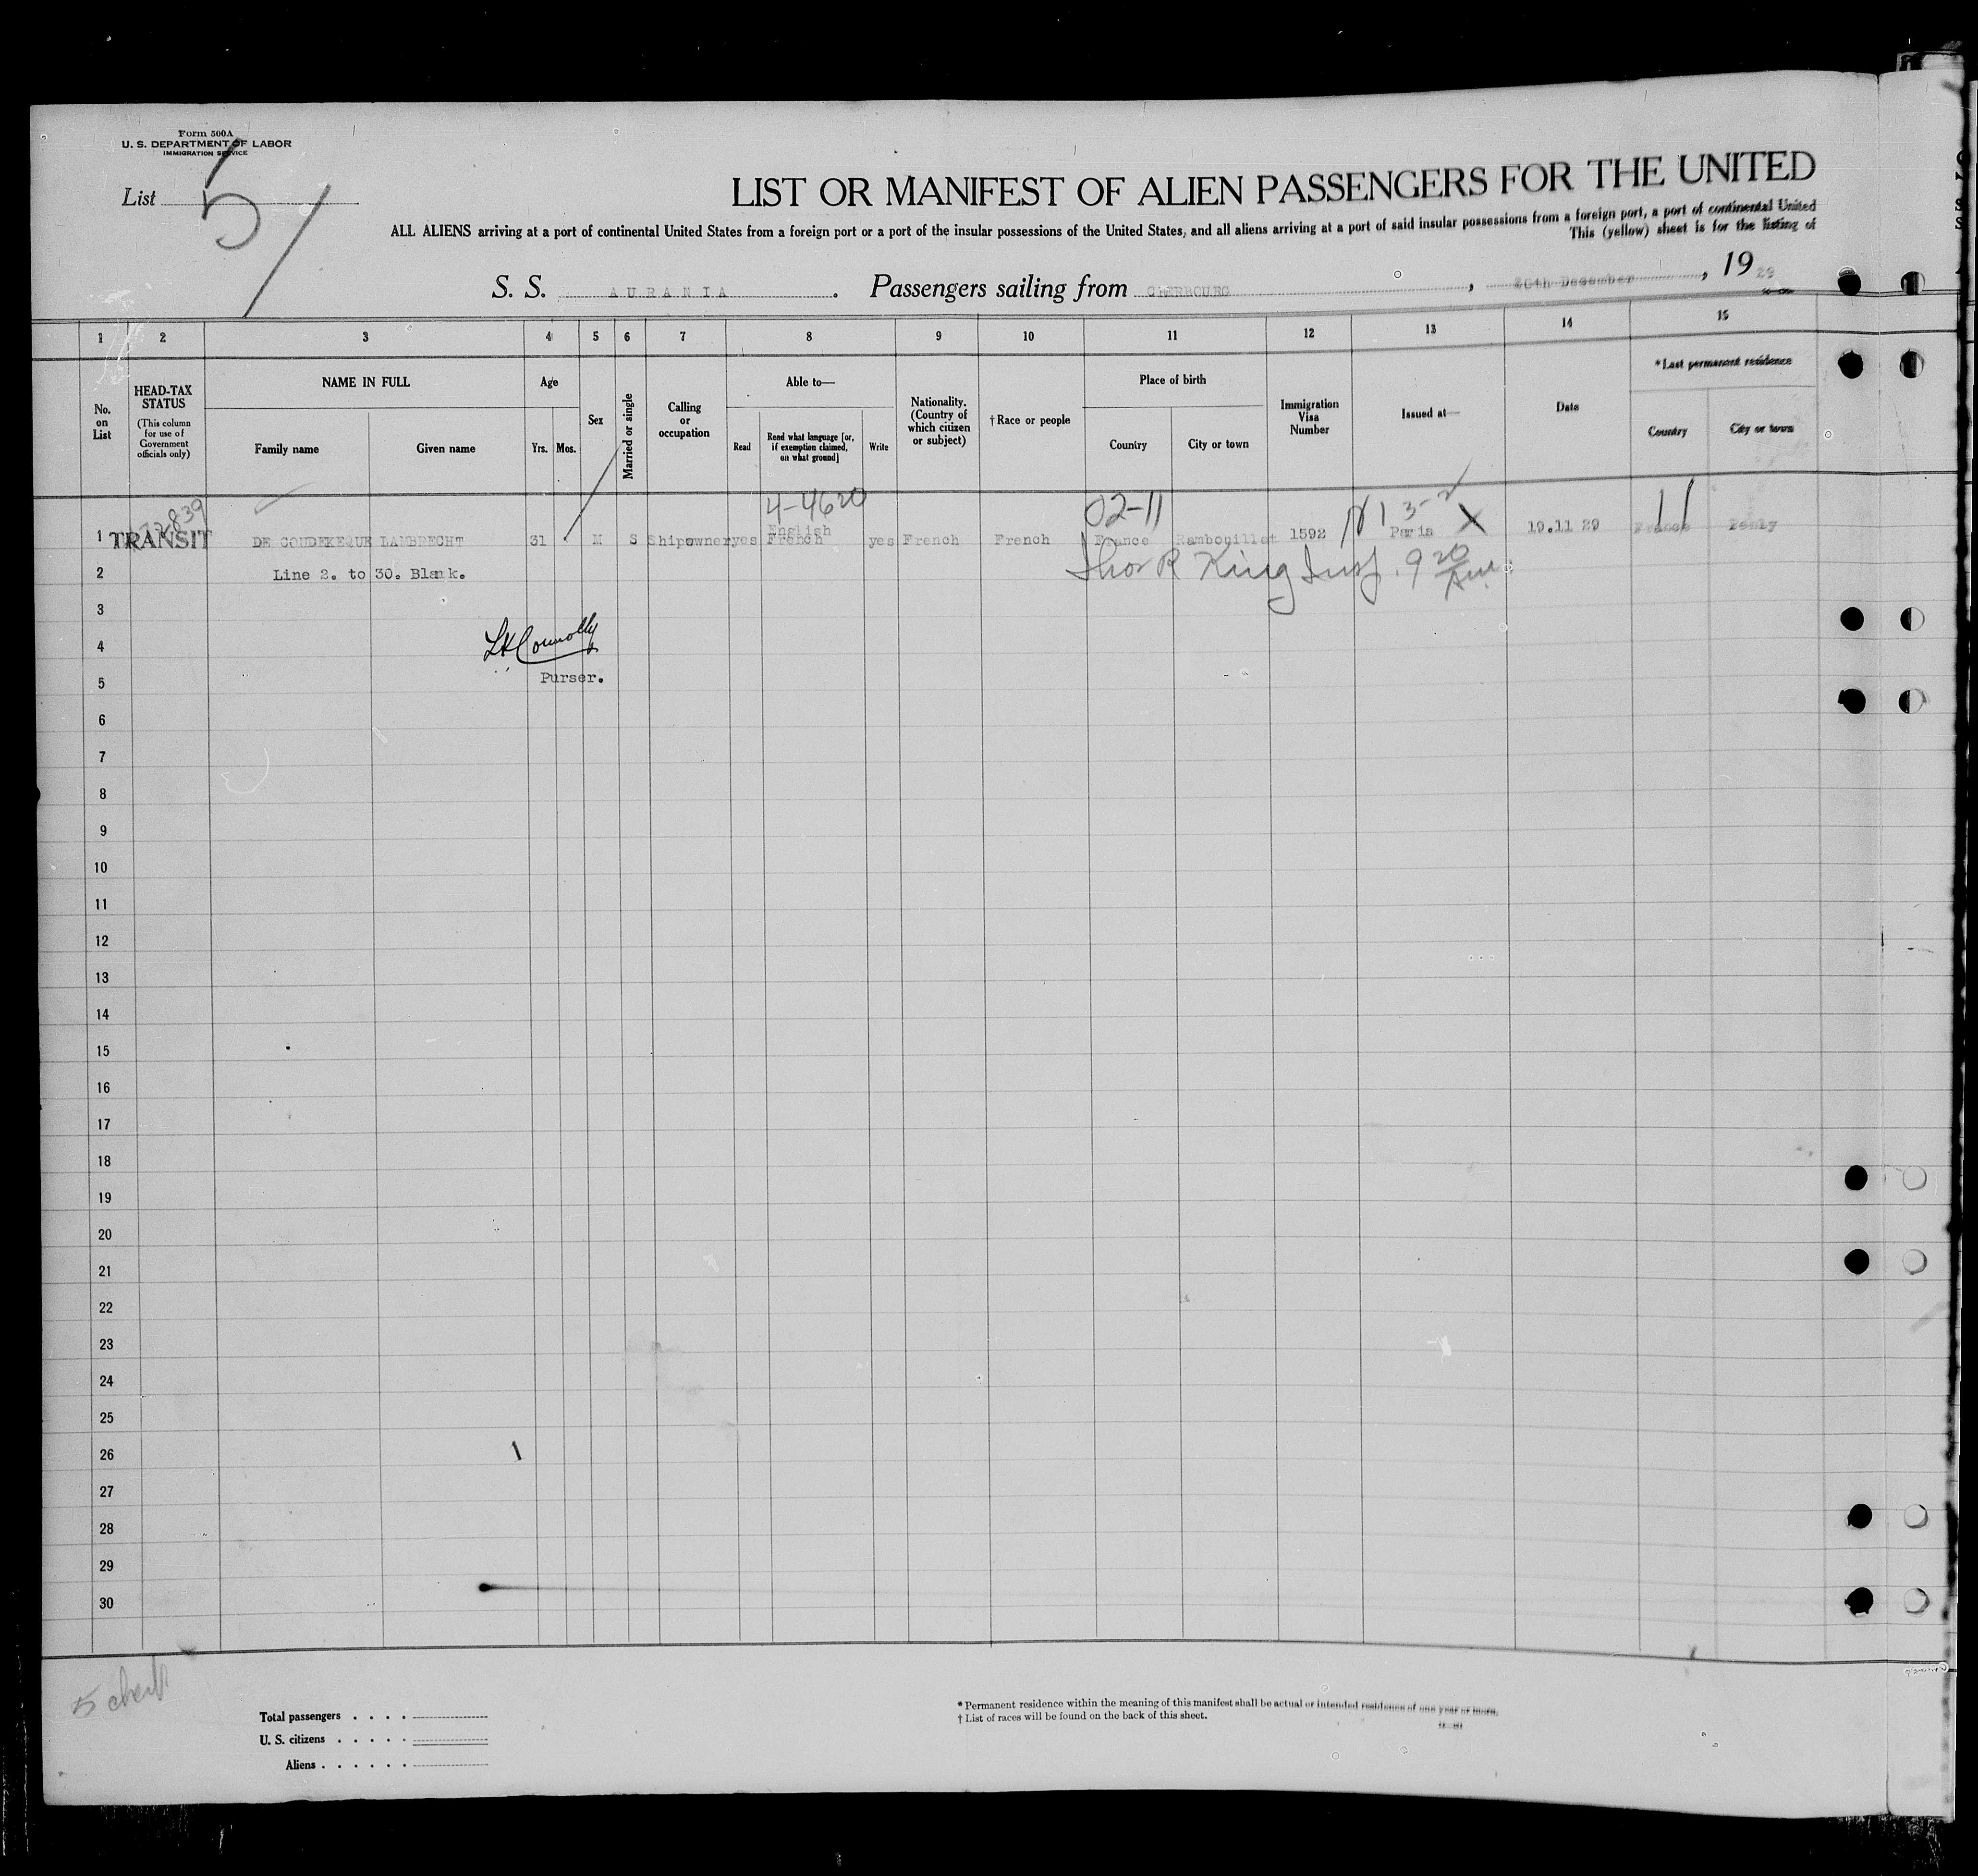 Form 500A
U. S. DEPARTMENT OF LABOR
IMMIGRATION SERVICE
List 5
LIST OR MANIFEST OF ALIEN PASSENGERS FOR THE UNITED
ALL ALIENS arriving at a port of continental United States from a foreign port or a port of the insular possessions of the United States, and all aliens arriving at a port of said insular possessions from a foreign port, a port of continental United
This (yellow) sheet is for the listing of
S. S. AURANIA. Passengers sailing from CHERBOURG, December, 1929
1 2 3 4 5 6 7 8 9 10 11 12 13 14 15
No. on List
HEAD-TAX STATUS
(This column for use of Government officials only)
NAME IN FULL
Family name
Given name
Age
Yrs.
Mos.
Sex
Married or single
Calling or occupation
Able to—
Read
Read what language [or, if exemption claimed, on what ground]
Write
Nationality. (Country of which citizen or subject)
† Race or people
Place of birth
Country
City or town
Immigration Visa Number
Issued at—
Date
* Last permanent residence
Country
City or town
4-4620 02-11
English
1 TRANSIT DE COUDEKEQUE LAMBRECHT 31 M S Shipowner yes French yes French French France Rambouillet 1592 Paris X 19.11 29 France
2 Line 2. to 30. Blank. King Insp. 9 20
3
4 Connolly
5 Purser.
6
7
8
9
10
11
12
13
14
15
16
17
18
19
20
21
22
23
24
25
26
27
28
29
30
Total passengers
U. S. citizens
Aliens
* Permanent residence within the meaning of this manifest shall be actual or intended residence of one year or more.
† List of races will be found on the back of this sheet.